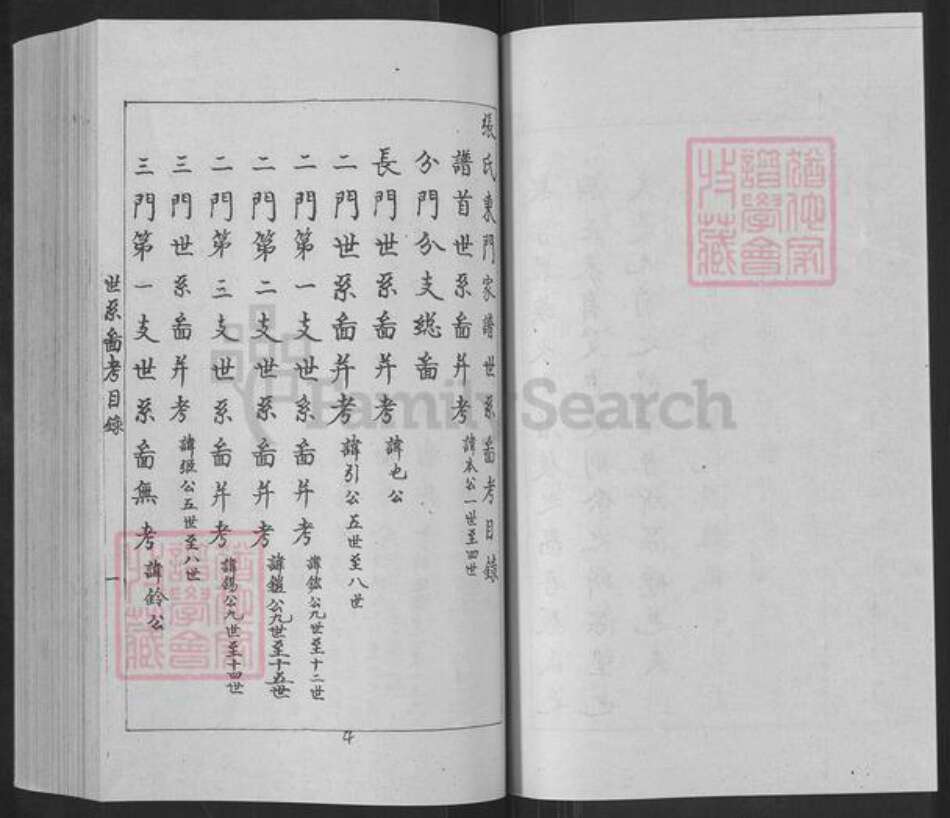 張氏東門家譜世系啚考目錄
譜首世系啚并考 諱本公一世至四世
分門分支總啚
長門世系啚并考 諱屯公
二門世系啚并考 諱引公五世至八世
二門第一支世系啚并考 諱 公九世至十二世
二門第二支世系啚并考 諱 公九世至十五世
二門第三支世系啚并考 諱錫公九世至十四世
三門世系啚并考 諱 公五世至八世
三門第一支世系啚無考 諱鈴公
世系啚考目錄
一
4
FamilySearch
譜學會
收藏